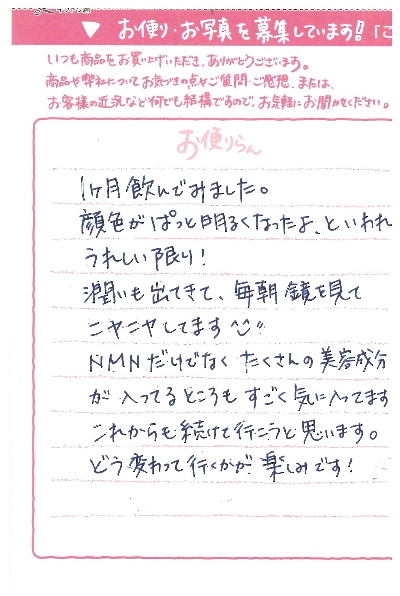 ▼ お便り・お写真を募集しています!「こ
いつも商品をお買い上げいただき、ありがとうございます。
商品や弊社についてお気づきの点やご質問・ご感想、または、
お客様の近況など何でも結構ですので、お気軽にお聞かせください。
お便りらん
1ヶ月飲んでみました。
顔色がぱっと明るくなったよ、といわれ
うれしい限り!
潤いも出てきて、毎朝鏡を見て
ニヤニヤしてます
NMNだけでなくたくさんの美容成分
が入ってるところもすごく気に入ってます
これからも続けて行こうと思います。
どう変わって行くかが楽しみです!